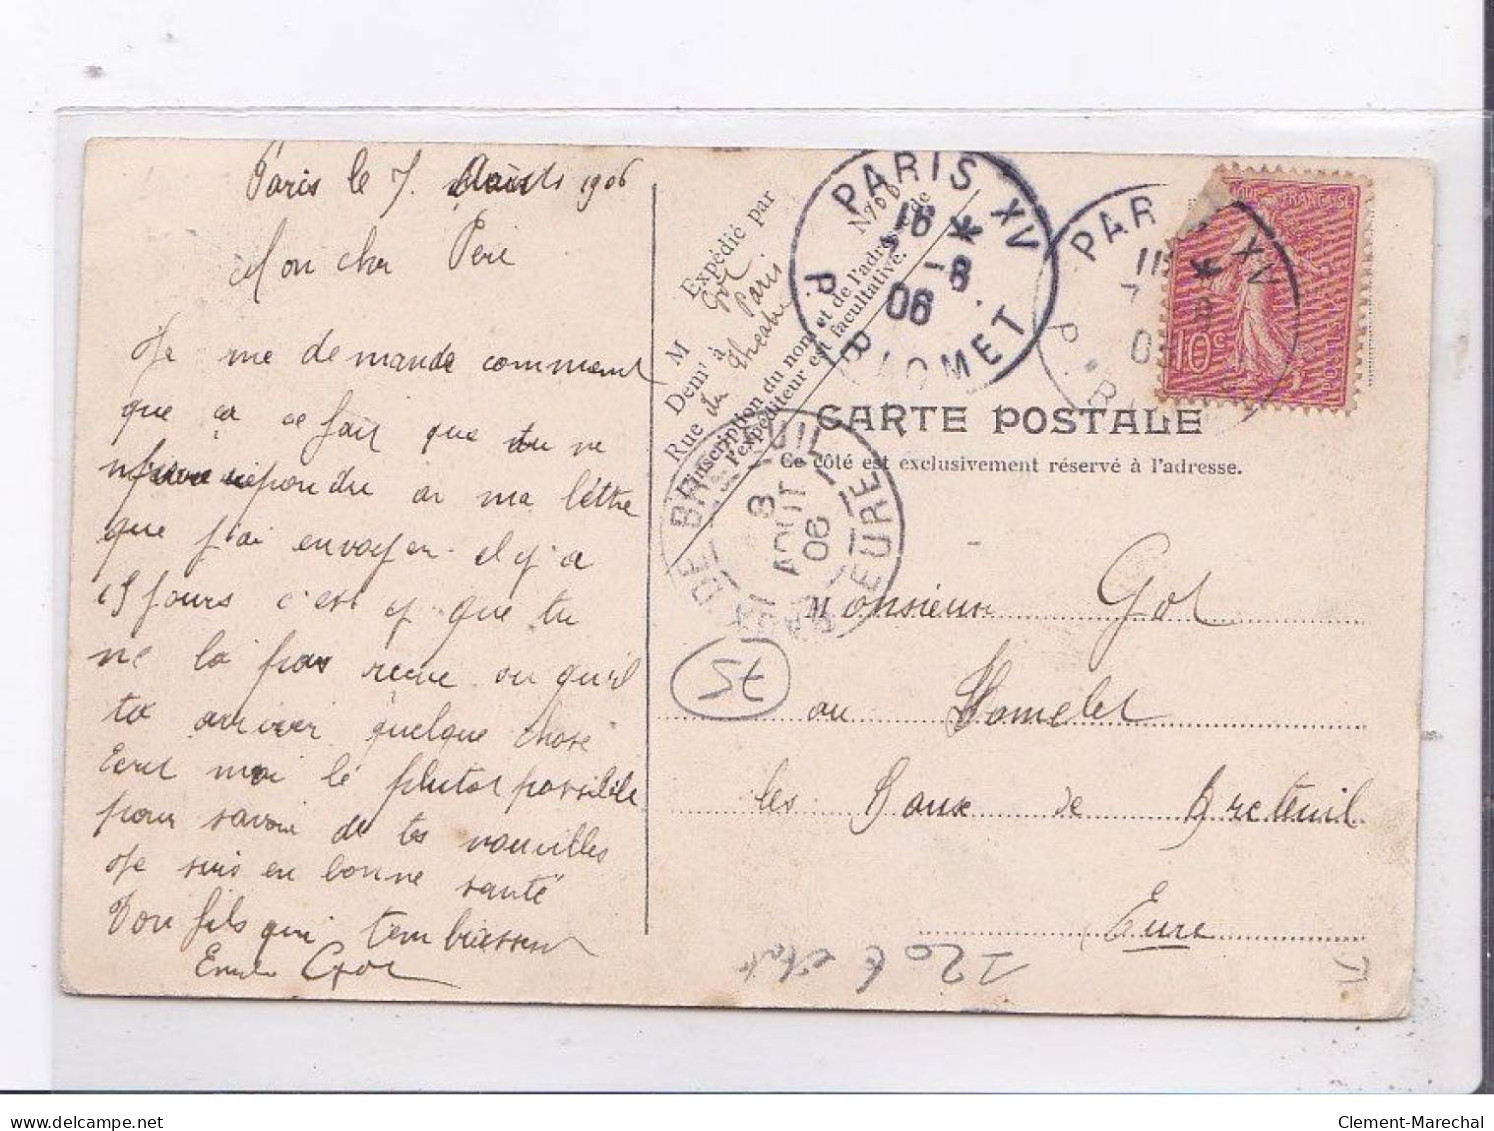 Paris le 7 Août 1906
Mon cher Père
Je me demande comment
que ça ce fait que tu ne
répondre a ma léttre
que j'ai envoyer il y a
15 jours c'est y que tu
ne la pas reçue ou qu'il
ta arriver quelque chose
Ecrit moi le plutot possible
pour savoir de tes nouvelles
Je suis en bonne santé
Ton fils qui tembrassen
Emile Got
Expédié par
M Got
Demt à Paris
Rue du Théatre
N° 100
L'inscription du nom et de l'adresse de
l'expéditeur est facultative.
PARIS XV
16 * 7 -8 06
P. BLOMET
PARIS XV
P. BLOMET
10c
POSTES
CARTE POSTALE
Ce côté est exclusivement réservé à l'adresse.
BRETEUIL
8 AOUT 06
EURE
75
Monsieur Got
au Hamelet
les Baux de Breteuil
Eure
120 E état
delcampe.net
Clement-Marechal